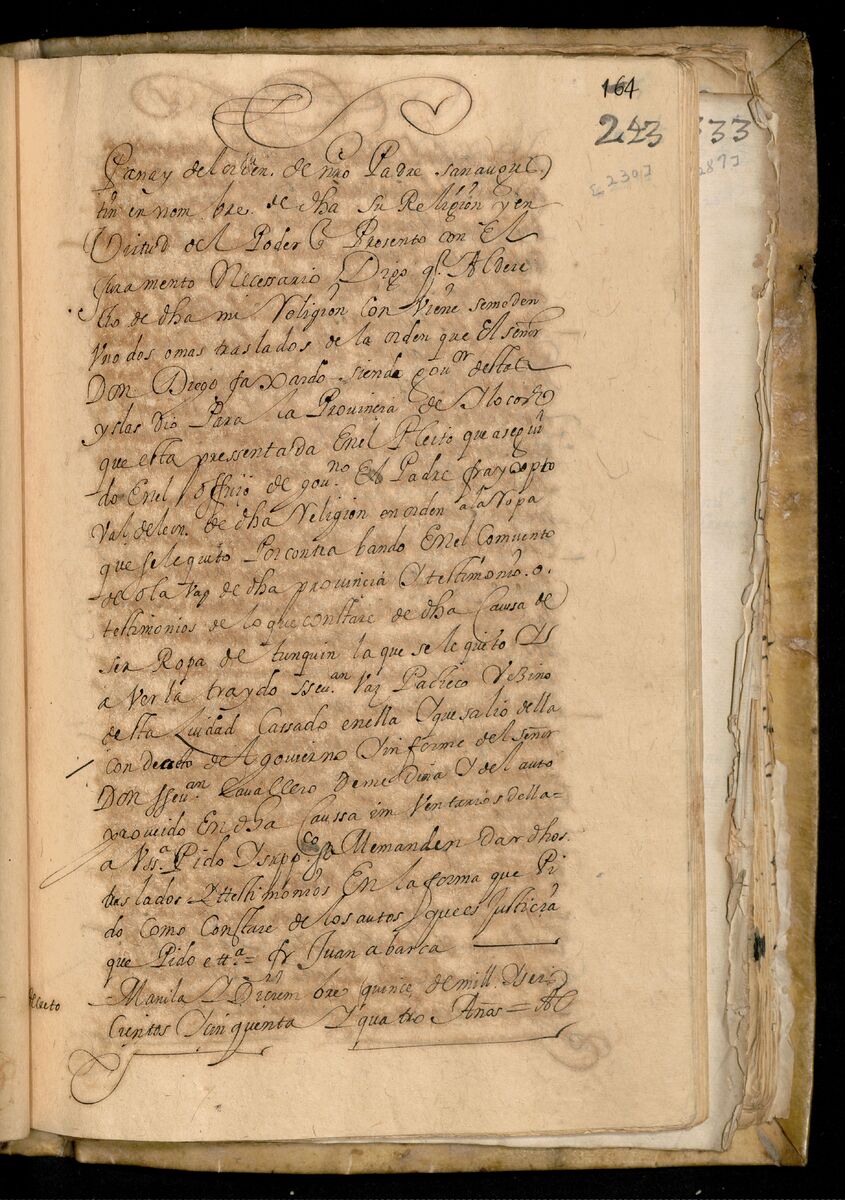 164
243 333
[2397 287]
Panay del orden. de nro Padre san augus
tin en nom bre. de dha su Religion y en
Virtud del Poder q Presento con El
Juramento Necessario Digo q.e Al dere
cho de dha mi Religion con Viene semeden
Vno dos o mas traslados de la orden que El señor
Don Diego faxardo siendo gou.or destas
yslas dio Para la Provincia de Ylocos
que esta pressentada En el Pleito que a segui
do En el offiçio de gou.no El Padre fray xpto
Val de leon. de dha Religion en orden a la Ropa
que se le quito Por contra bando En el Comuento
de de dha provincia Y testimonio. o.
testimonios de lo que constare de dha Caussa de
ser Ropa de tunquin la que se le quito Y
a Verla traydo sseu.an Vaz Pacheco Vezino
desta Ciudad Cassado en ella Y que salio della
con decreto del gouierno Y informe del señor
Don sseu.an Cavallero de medina Y del auto
proueido En dha Caussa im Ventarios della =
a Vss.a Pido Y supp.co Me manden dar dhos.
tras lados Y testimonios En la forma que Pi
do como Constare de los autos que es Justicia
que Pido ett.a = fr Juan a barca
Manila Y Diciem bre quince de mill Y seis
Cientos Y cin quenta Y qua tro Años = Al